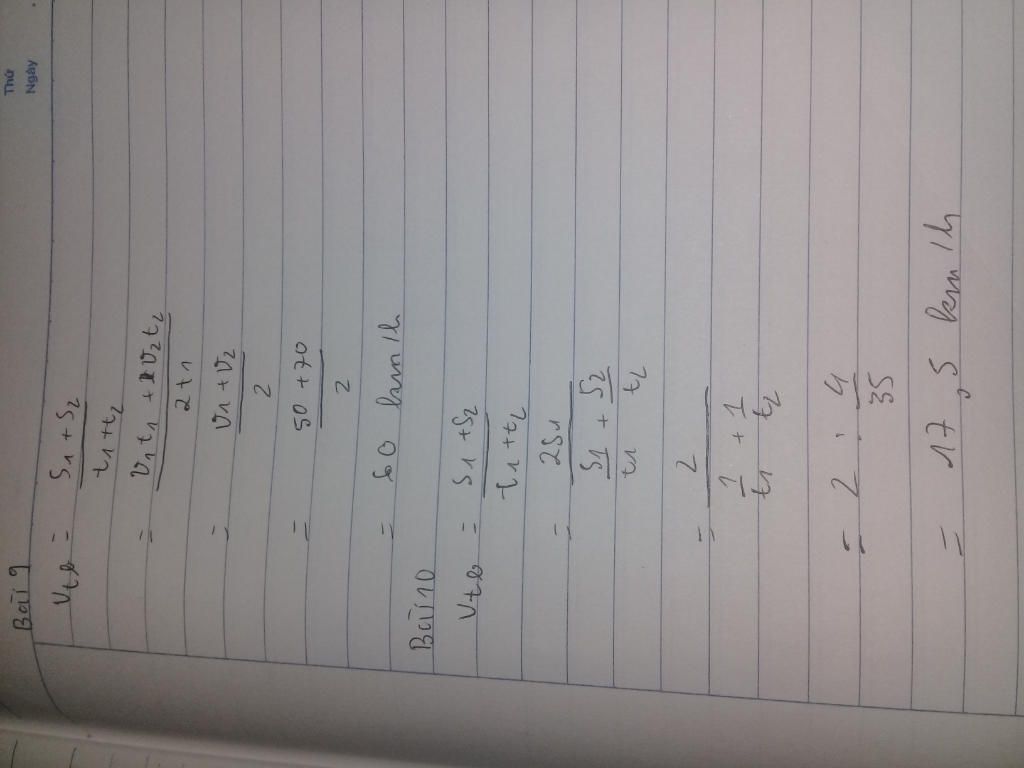 Thứ
Ngày
Bài 9
Vtb = S1 + S2 / t1 + t2
= v1t1 + v2t2 / 2t1
= v1 + v2 / 2
= 50 + 70 / 2
= 60 km/h
Bài 10
Vtb = S1 + S2 / t1 + t2
= 2S1 / S1/t1 + S2/t2
= 2 / 1/t1 + 1/t2
= 2 : 4/35
= 17,5 km/h